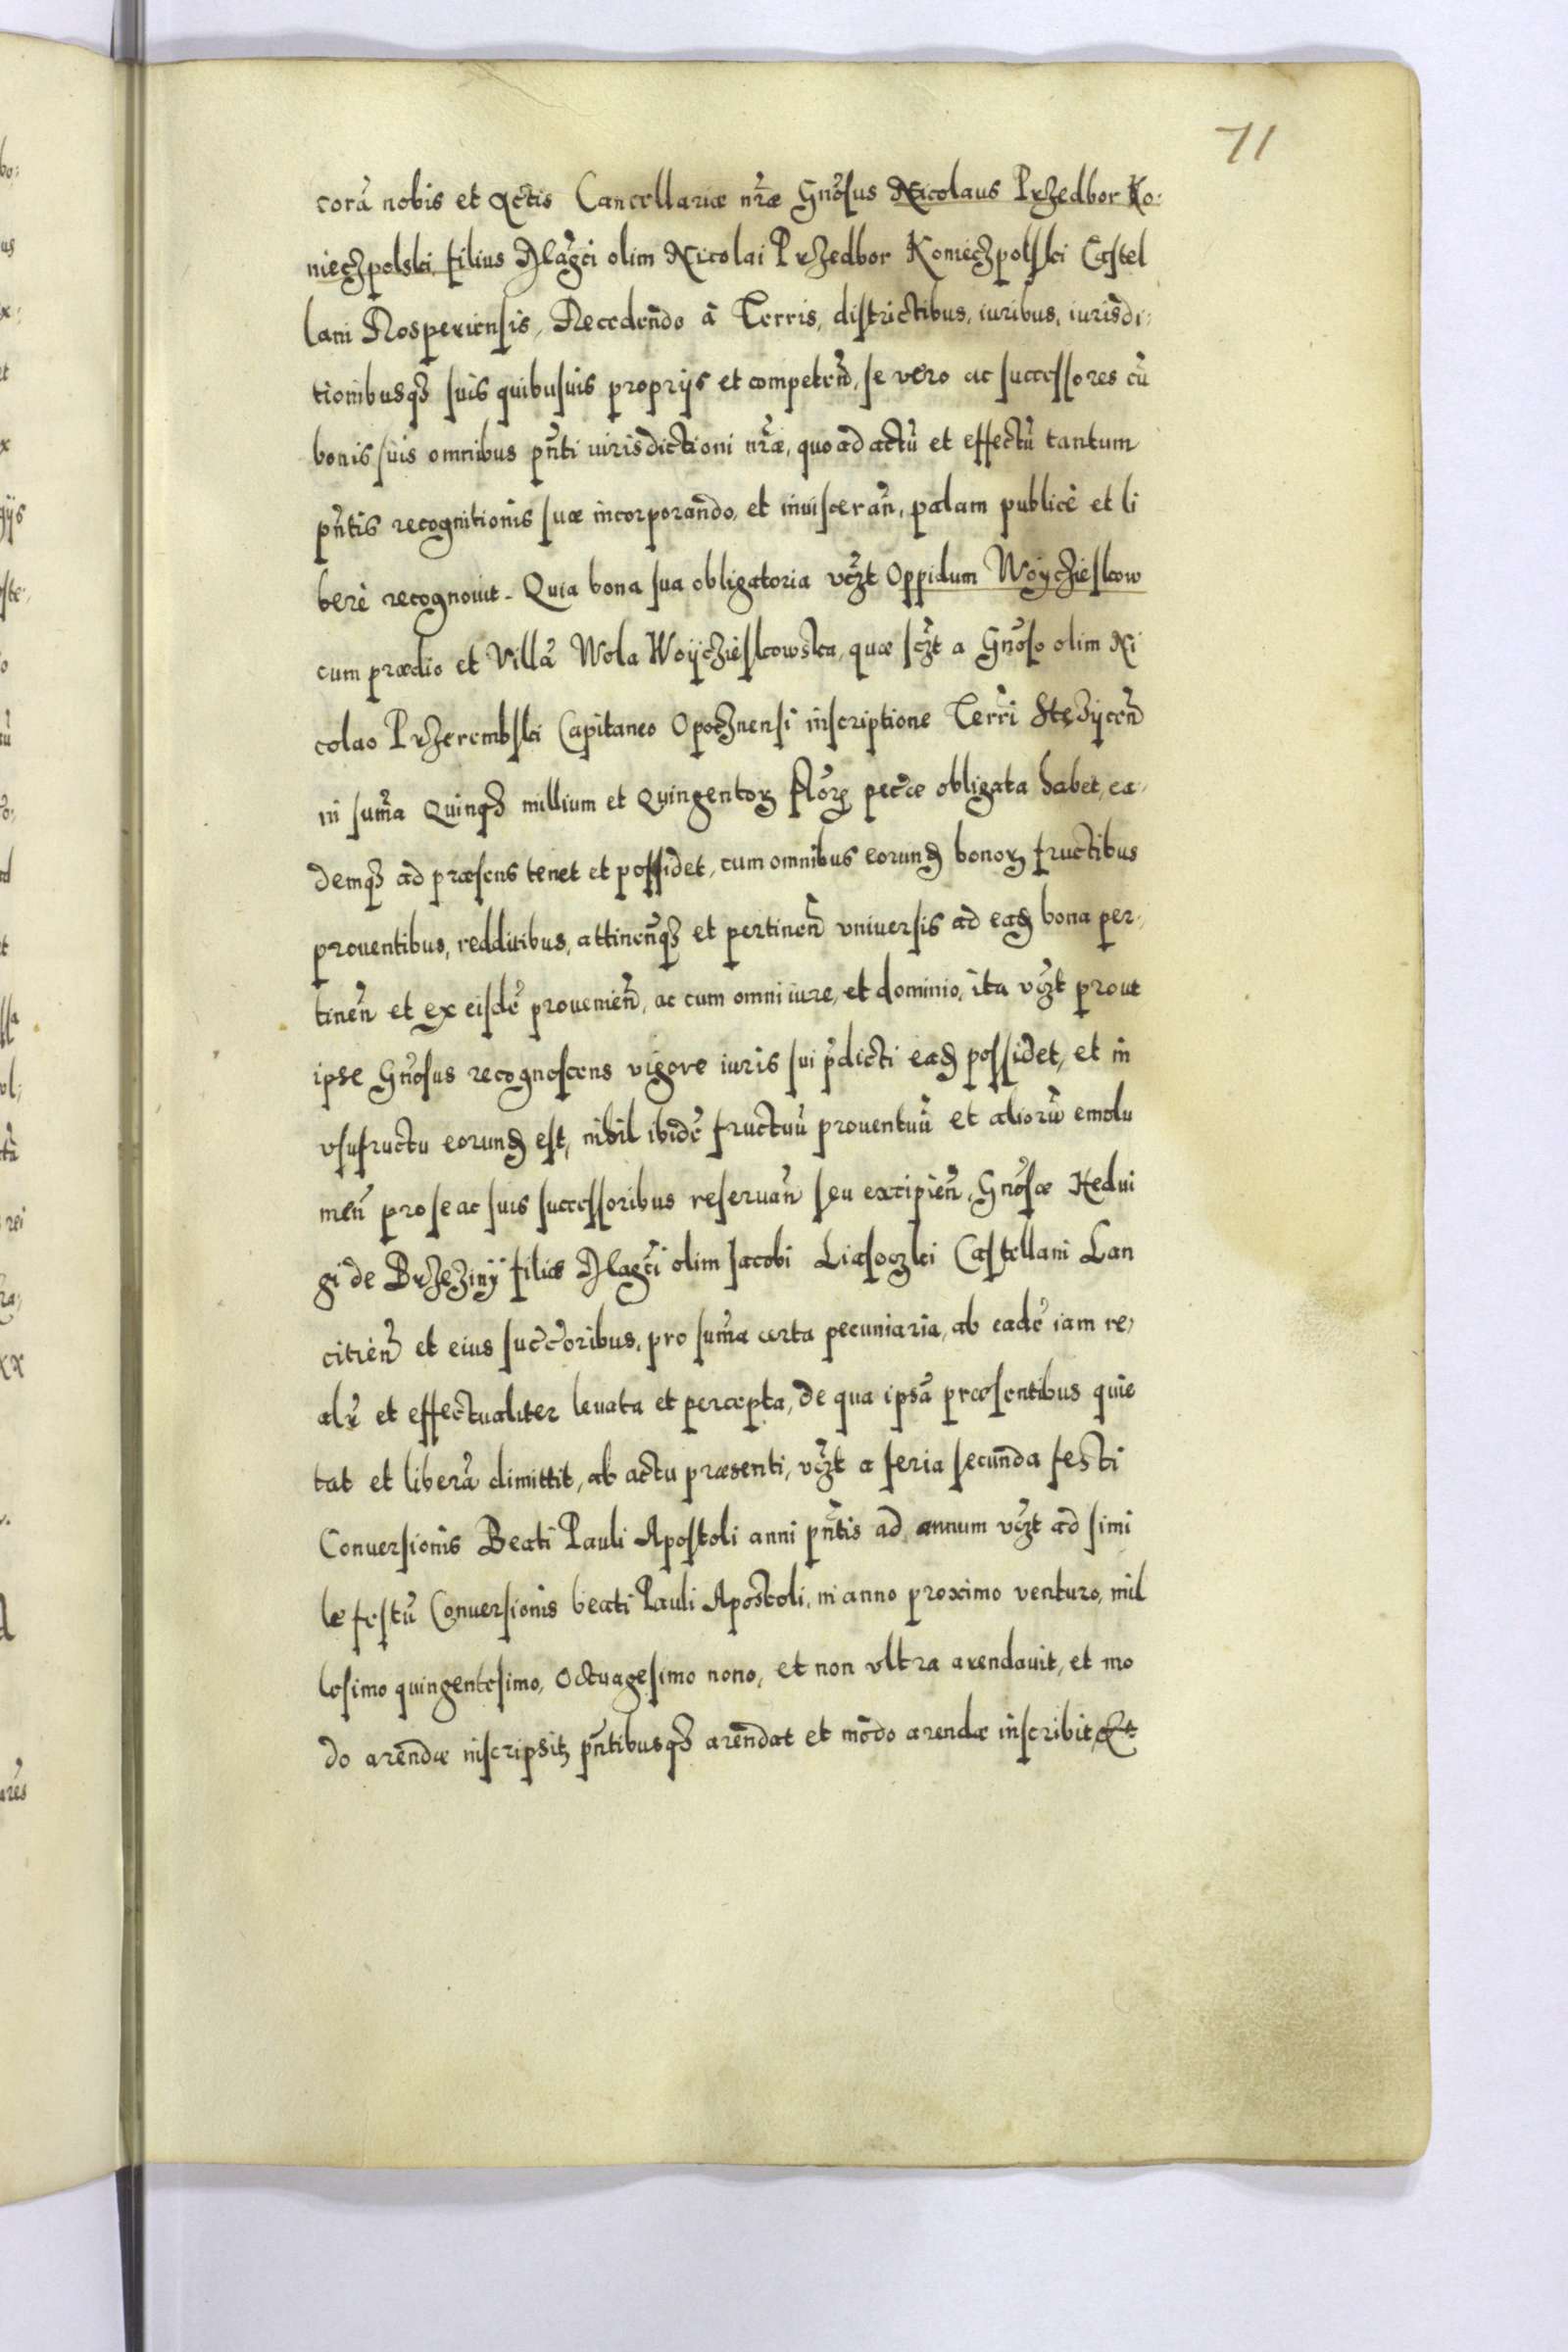 71
corã nobis et Actis Cancellariæ nr̃æ Gnõsus Nicolaus Przedbor Ko:
nieczpolski filius Magci olim Nicolai Przedbor Konieczpolski Castel
lani Rosperiensis, Recedendo à Terris, districtibus, iuribus, iurisdi:
tionibusqȝ suis quibusuis proprijs et competeñ, se vero ac successores cũ
bonis suis omnibus pñti iurisdictioni nr̃æ, quo ad actũ et effectũ tantum
pñtis recognitionis suæ incorporando, et inuiscerañ, palam publicè et li
berè recognouit. Quia bona sua obligatoria vcȝt Oppidum Woyczieskow
cum prædio et Villa Wola Woyczieskowska, quæ scȝt a Gnõso olim Ni
colao Przerembski Capitaneo Opocznensi inscriptione Terri Stezyceñ
in sum̃a Quinqȝ millium et Quingentoꝝ Flõꝝ pecc̃æ obligata habet, ea-
demqȝ ad præsens tenet et possidet, cum omnibus eorund bonoꝝ fructibus
prouentibus, redditibus, attineñqȝ et pertineñ vniuersis ad ead bona per-
tineñ et ex eisdẽ prouenieñ, ac cum omni iure, et dominio, ita vcȝt prout
ipse Gnõsus recognoscens vigore iuris sui p̃dicti ead possidet, et in
vsufructu eorund est, nihil ibidẽ fructuũ prouentuũ et aliorũ emolu
meñ pro se ac suis successoribus reseruañ seu excipieñ, Gnõsæ Hedui
gi de Brzeziny filiæ Magci olim Jacobi Liasoczki Castellani Lan
citieñ et eius succ̃oribus, pro sum̃a certa pecuniaria, ab eadẽ iam re,
alr̃ et effectualiter leuata et percepta, de qua ipsã præsentibus quie
tat et liberã dimittit, ab actu præsenti, vcȝt a feria secunda festi
Conuersionis Beati Pauli Apostoli anni pñtis ad annum vcȝt ad simi
le festũ Conuersionis beati Pauli Apostoli, in anno proximo venturo, mil
lesimo quingentesimo, Octuagesimo nono, et non vltra arendauit, et mo
do arendæ inscripsit, pñtibusqȝ arendat et modo arendæ inscribit, Et